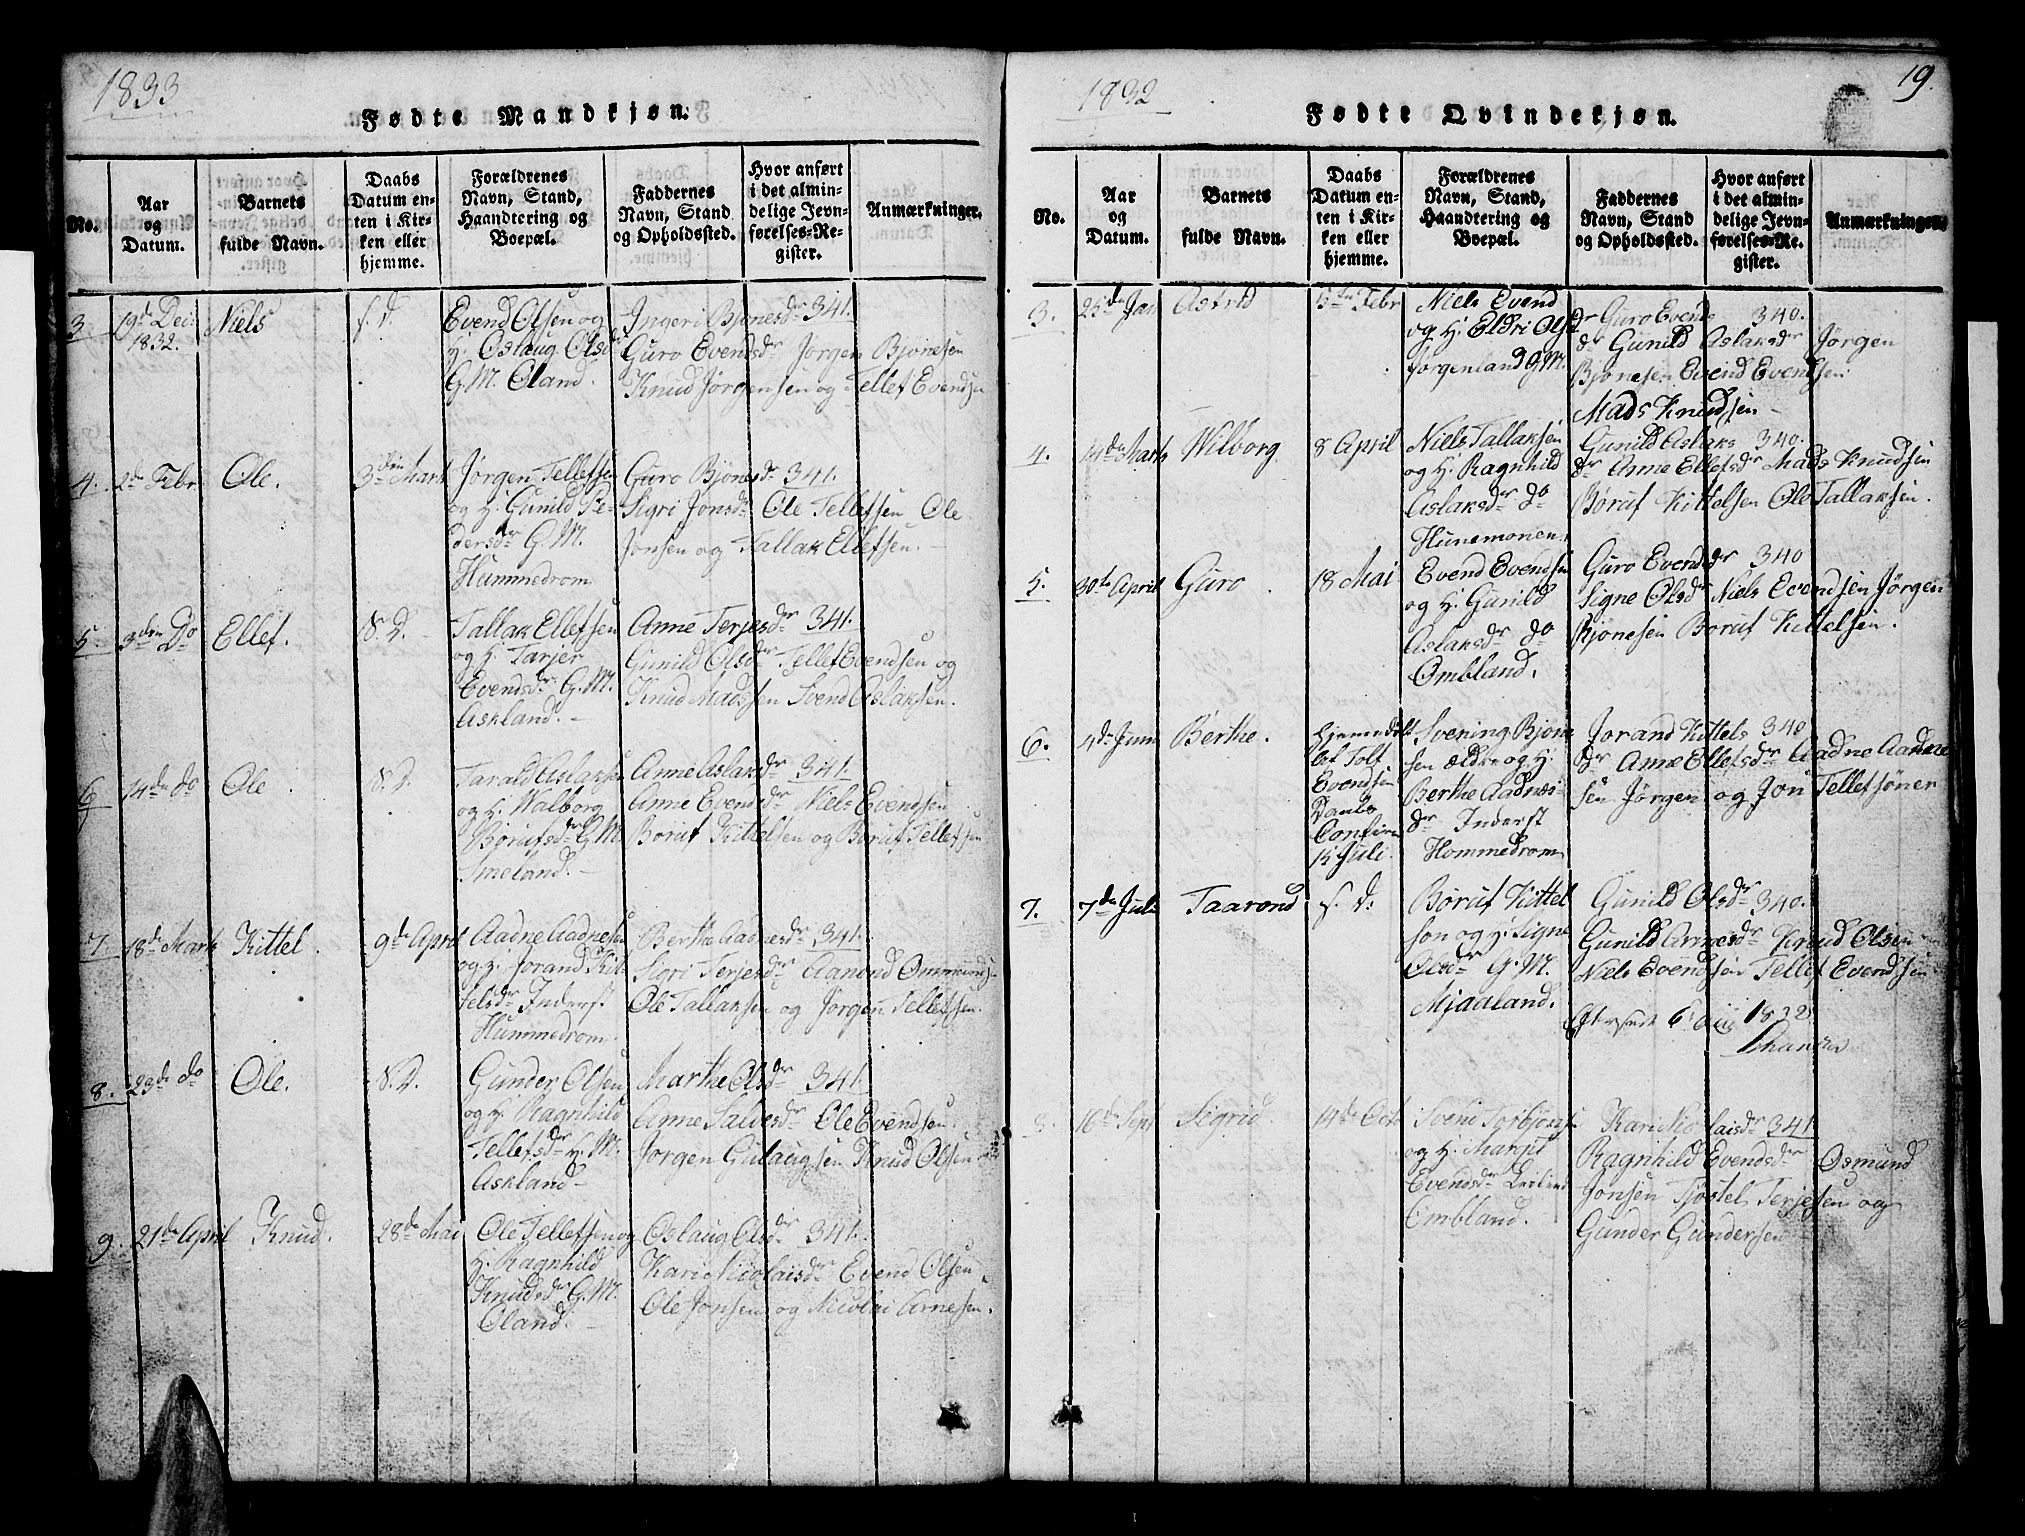 1833
Fødte Mandkjøn.
No.
Aar og Datum.
Barnets fulde Navn.
Daabs Datum enten i Kirken eller hjemme.
Forældrenes Navn, Stand, Haandtering og Boepæl.
Faddernes Navn, Stand og Opholdssted.
Hvor anført i det almindelige Jevnførelses-Register.
Anmærkninger.
3. 19d Dei 1832. Niels f. D.
Evend Olsen og
H. Oslaug Olsdr
G.M. Oland.
Ingeri Bjonesdr 341.
Guro Evendsdr Jorgen Bjonesen
Knud Jorgensen og Tellef Evendsen
4. 2de Febr Ole. 3den Mart
Jørgen Tellefsen
og H. Gunild Pe-
dersdr G.M.
Hummedrom
Guro Bjonesdr 341.
Sigri Jonsdr Ole Tellefsen Ole
Jonsen og Tallak Ellefsen.
5. 3den Do Ellef. S. D.
Tallak Ellefsen
og H. Tarjer
Evendsdr G.M.
Askland.
Anne Terjesdr 341.
Gunild Olsdr Tellef Evendsen og
Knud Madssen Svend Aslaksen.
6 14de do Ole S. D.
Tarald Aslaksen
og H. Walborg
Børufsdr G.M.
Smeland.
Anne Aslaksdr 341.
Anne Evendsdr Niels Evendsen
Boruf Kittelsen og Boruf Tellefsen
7. 18de Marts Kittel. 9de April
Aadne Aadnesen
og H. Jorand Kit-
telsdr Inderst
Hummedrom
Berthe Aadnesdr 341.
Sigri Terjesdr Aamond Ommunds.
Ole Tallaksen og Jørgen Tellefsen.
8. 23de do Ole. S. D.
Gunder Olsen
og H. Ragnhild
Tellefsdr H.M.
Askland
Marthe Olsdr 341.
Anne Salvesdr Ole Evendsen.
Jorgen Gulaugsen Knud Olsen
9. 21de April Knud. 28de Mai
Ole Tellefsen og
H. Ragnhild
Knudsdr G.M.
Oland.
Oslaug Olsdr 341.
Kari Nicolaisdr Evend Olsen.
Ole Jonsen og Nicolai Arnesen.
1832
19.
Fødte Qvindekjøn.
No.
Aar og Datum.
Barnets fulde Navn.
Daabs Datum enten i Kirken eller hjemme.
Forældrenes Navn, Stand, Haandtering og Boepæl.
Faddernes Navn, Stand og Opholdssted.
Hvor anført i det almindelige Jevnførelses-Register.
Anmærkninger.
3. 25de Jan Astrid Febr
Niels Evend
og H. Eldri Ols
Jorgenland GM.
dr Guro Evends 340.
dr Gunild Aslaksdr Jørgen
Bjonesen Evend Evendsen
Mads Knudsen
4. 14de Marts Wilborg 8 April
Niels Tallaksen
og H. Ragnhild
Aslaksdr do
Hunemonen.
Gunild Aslaks 340.
dr Anne Ellefsdr Mads Knudsen
Boruf Kittelsen Ole Tallaksen.
5. 30te April Guro 18 Mai
Evend Evendsen
og H. Gunild
Aslaksdr do
Ombland.
Guro Evendsdr 340
Signe Olsdr Niels Evendsen Jørgen
Bjonesen Boruf Kittelsen.
6. 4de Juni Berthe.
Hjemmedøbt
af Tolf
Evendsen
Daabs
Confirm
15 Juli.
Svening Bjone
sen ældre og H.
Berthe Aadnes-
dr Inderst
Hommedrom
Jorand Kittels 340
dr Anne Ellefsdr Aadne Aadne
sen Jørgen og Jon Tellefsøner
7. 7de Juli Taarand f. D.
Boruf Kittel
son og H. Signe
Olsdr G.M.
Mjaaland.
Gunild Olsdr 340.
Gunild Arnesdr Knud Olsen
Niels Evendsen Tellef Evendsen
Efterseet 6 1832
8. 16de Sept Sigrid 14de Octo
Svend Torbjons
og H. Margit
Evendsdr Leilend
Ombland.
Kari Nicolaisdr 341
Ragnhild Evendsdr Osmund
Jonsen Tjøstel Terjesen og
Gunder Gundersen